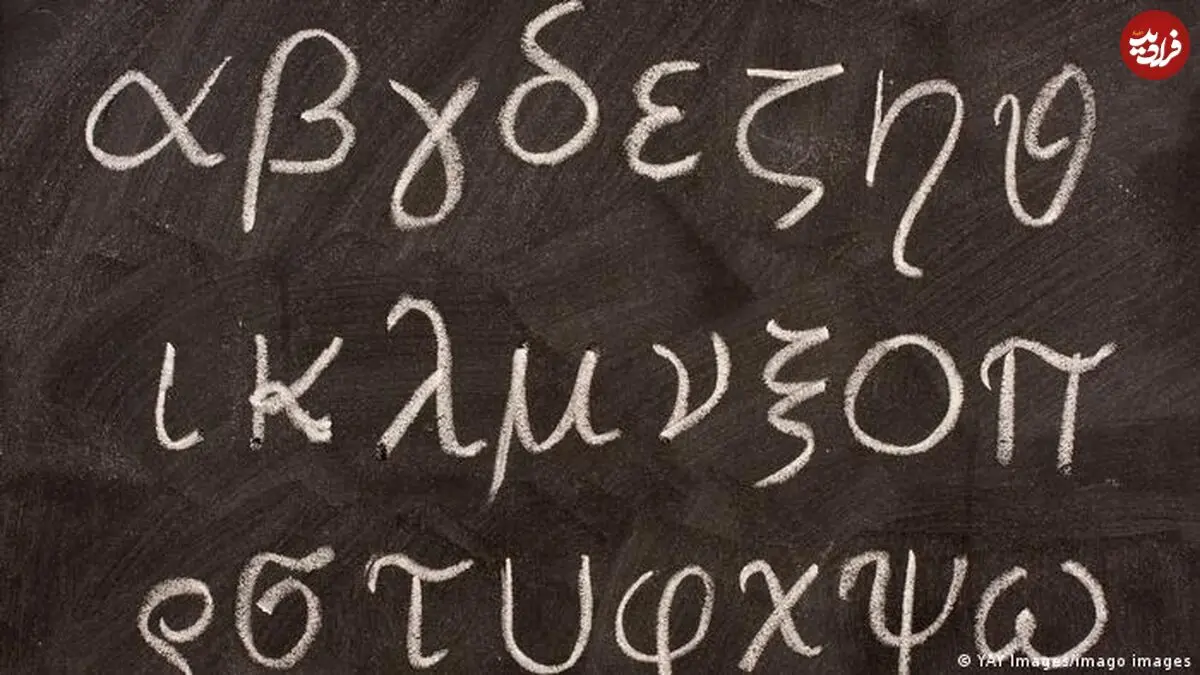 فرادید
α β γ δ ε ζ η θ
ι κ λ μ ν ξ ο π
ρ σ τ υ φ χ ψ ω
© YAY Images/imago images